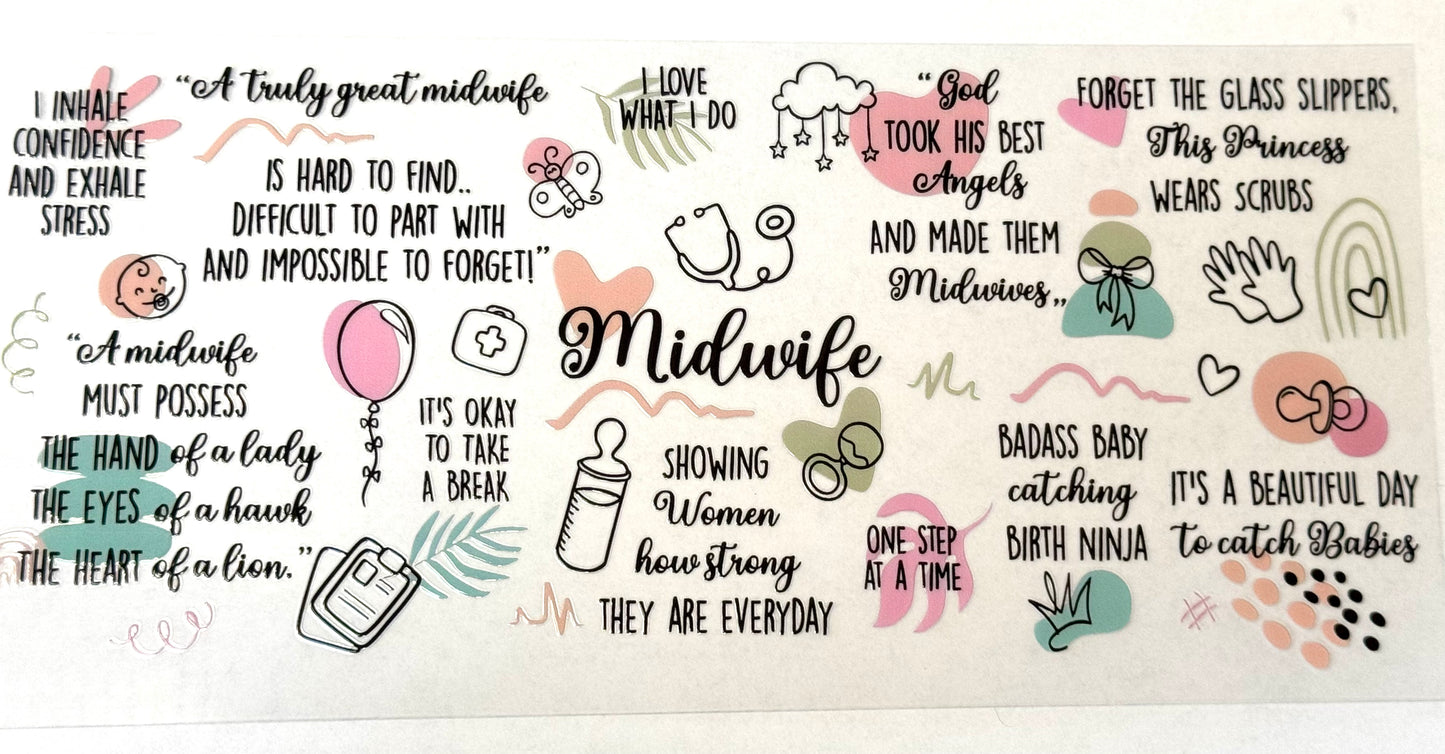 I INHALE
CONFIDENCE
AND EXHALE
STRESS
“A truly great midwife
IS HARD TO FIND..
DIFFICULT TO PART WITH
AND IMPOSSIBLE TO FORGET!”
I LOVE
WHAT I DO
“God
TOOK HIS BEST
Angels
AND MADE THEM
Midwives„
FORGET THE GLASS SLIPPERS,
This Princess
WEARS SCRUBS
“A midwife
MUST POSSESS
THE HAND of a lady
THE EYES of a hawk
THE HEART of a lion.”
IT'S OKAY
TO TAKE
A BREAK
Midwife
SHOWING
Women
how strong
THEY ARE EVERYDAY
ONE STEP
AT A TIME
BADASS BABY
catching
BIRTH NINJA
IT'S A BEAUTIFUL DAY
to catch Babies